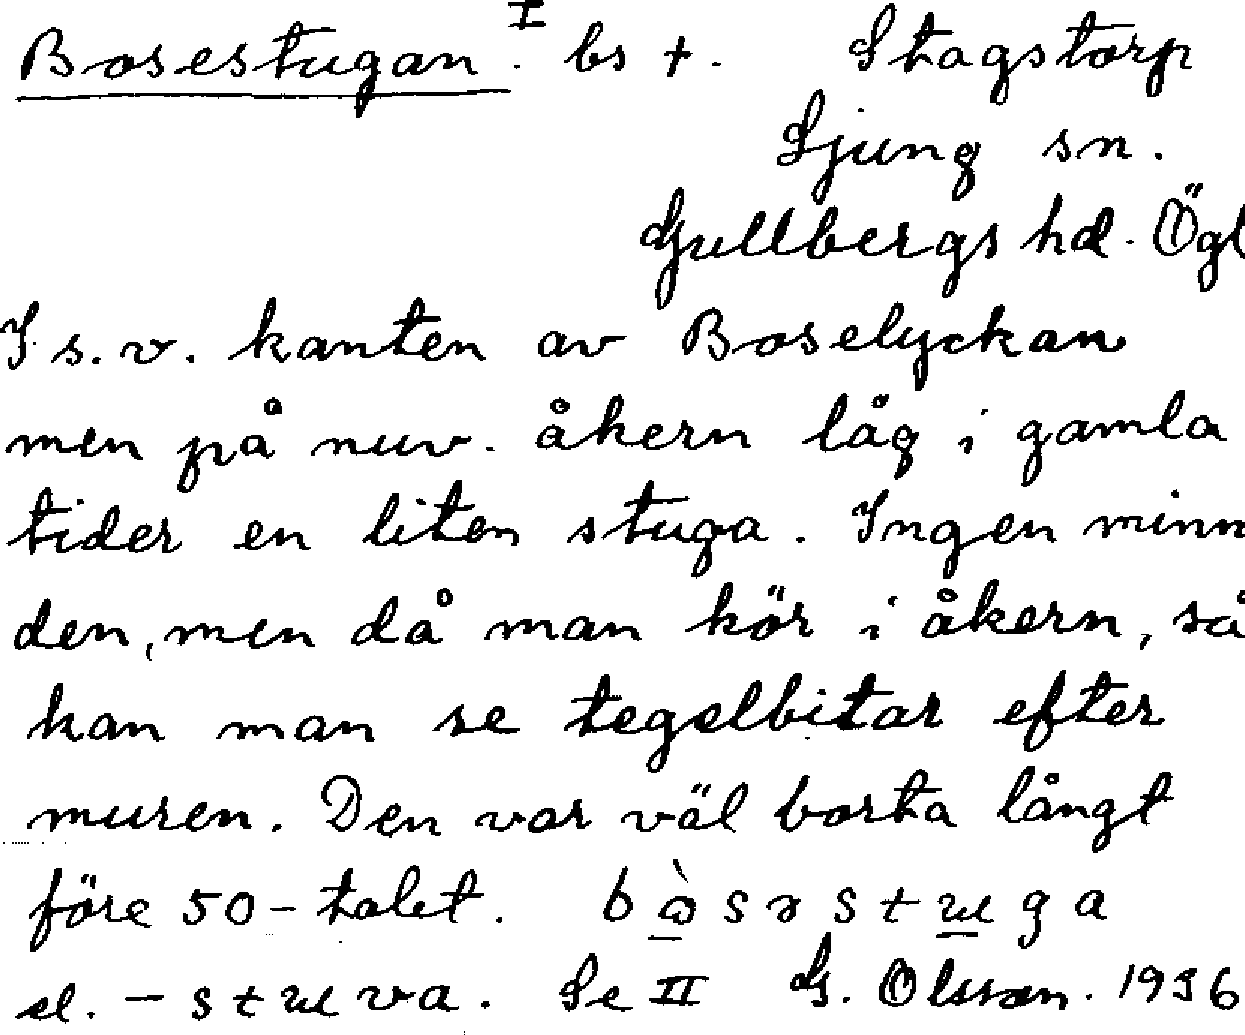 Bosestugan I. bs +. Stagstorp
Ljung sn.
Gullbergs hd. Ögl
I s.v. kanten av Boselyckan
men på nuv. åkern låg i gamla
tider en liten stuga. Ingen minn
den, men då man kör i åkern, så
kan man se tegelbitar efter
muren. Den var väl borta långt
före 50-talet.
el. Se II G. Olsson. 1936